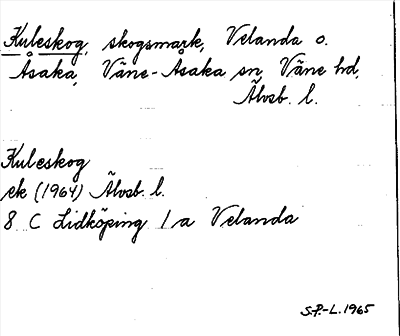 Kuleskog, skogsmark, Velanda o.
Åsaka, Väne-Åsaka sn, Väne hd,
Älvsb. l.
Kuleskog
ek (1964) Älvsb. l.
8 C Lidköping 1 a Velanda
S.P.-L. 1965